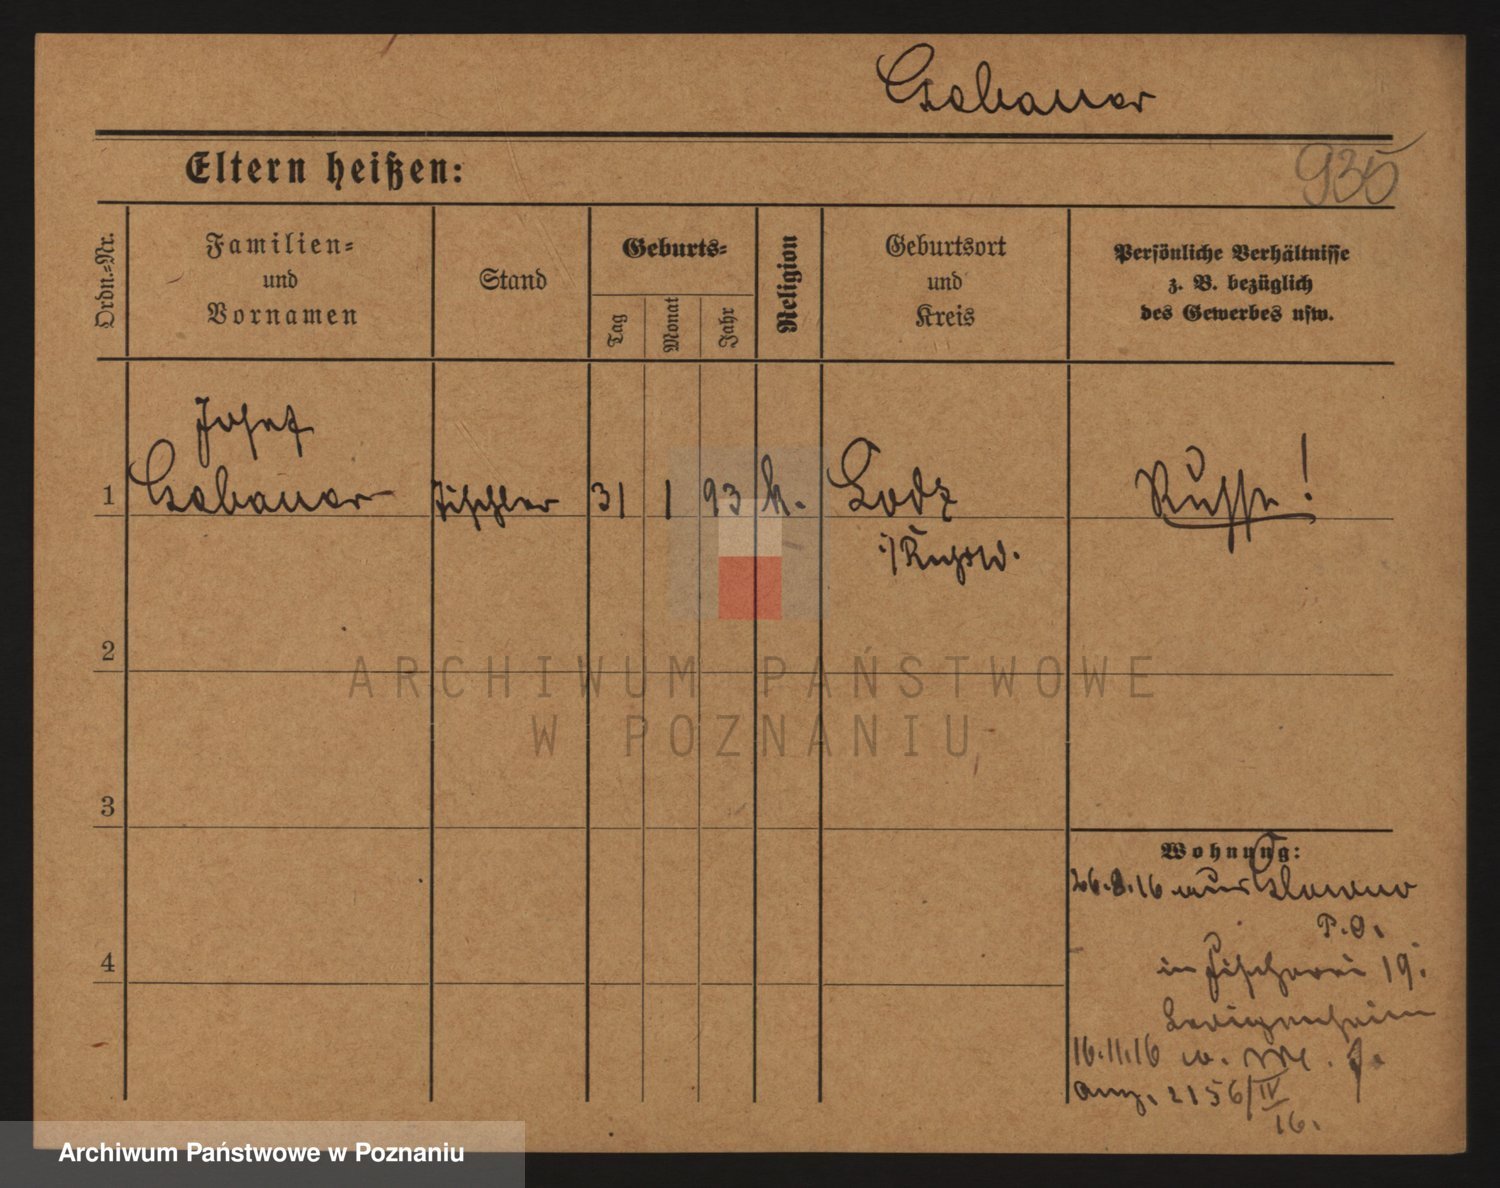 Gebauer
935
Eltern heißen:
Ordn.=Nr.
Familien=
und
Vornamen
Stand
Geburts=
Tag
Monat
Jahr
Religion
Geburtsort
und
Kreis
Persönliche Verhältnisse
z. B. bezüglich
des Gewerbes usw.
Josef
1 Gebauer Tischler 31 1 93 k. Lodz Russe!
i/Russld.
2
3
4
Wohnung:
26.8.16 aus
P.O.
in Fischerei 19.
Ledigenheim
16.11.16
Anz. 2156/IV
16.
ARCHIWUM PAŃSTWOWE
W POZNANIU
Archiwum Państwowe w Poznaniu